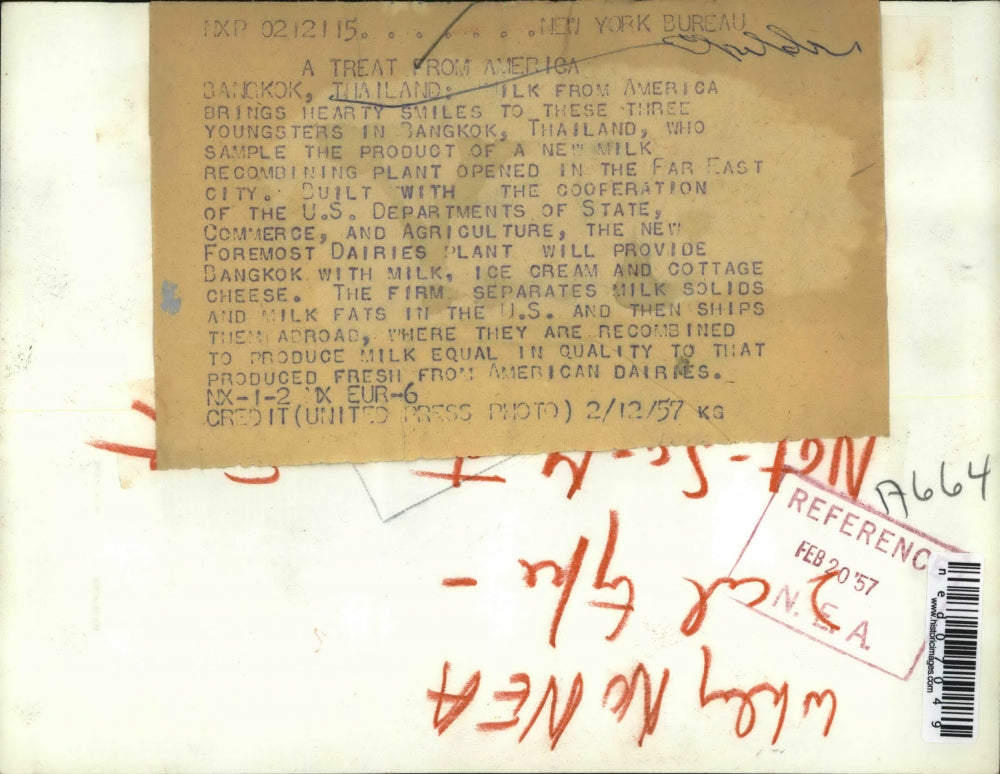 NXP 0212115. . . . . . . .NEW YORK BUREAU
A TREAT FROM AMERICA
BANGKOK, THAILAND: MILK FROM AMERICA
BRINGS HEARTY SMILES TO THESE THREE
YOUNGSTERS IN BANGKOK, THAILAND, WHO
SAMPLE THE PRODUCT OF A NEW MILK
RECOMBINING PLANT OPENED IN THE FAR EAST
CITY. BUILT WITH THE COOPERATION
OF THE U.S. DEPARTMENTS OF STATE,
COMMERCE, AND AGRICULTURE, THE NEW
FOREMOST DAIRIES PLANT WILL PROVIDE
BANGKOK WITH MILK, ICE CREAM AND COTTAGE
CHEESE. THE FIRM SEPARATES MILK SOLIDS
AND MILK FATS IN THE U.S. AND THEN SHIPS
THEM ABROAD, WHERE THEY ARE RECOMBINED
TO PRODUCE MILK EQUAL IN QUALITY TO THAT
PRODUCED FRESH FROM AMERICAN DAIRIES.
NX-1-2 MX EUR-6
CREDIT(UNITED PRESS PHOTO) 2/12/57 KG
A664
REFERENC
FEB 20 '57
N. E. A.
ned07049
www.historicimages.com
2 col
NO NEA